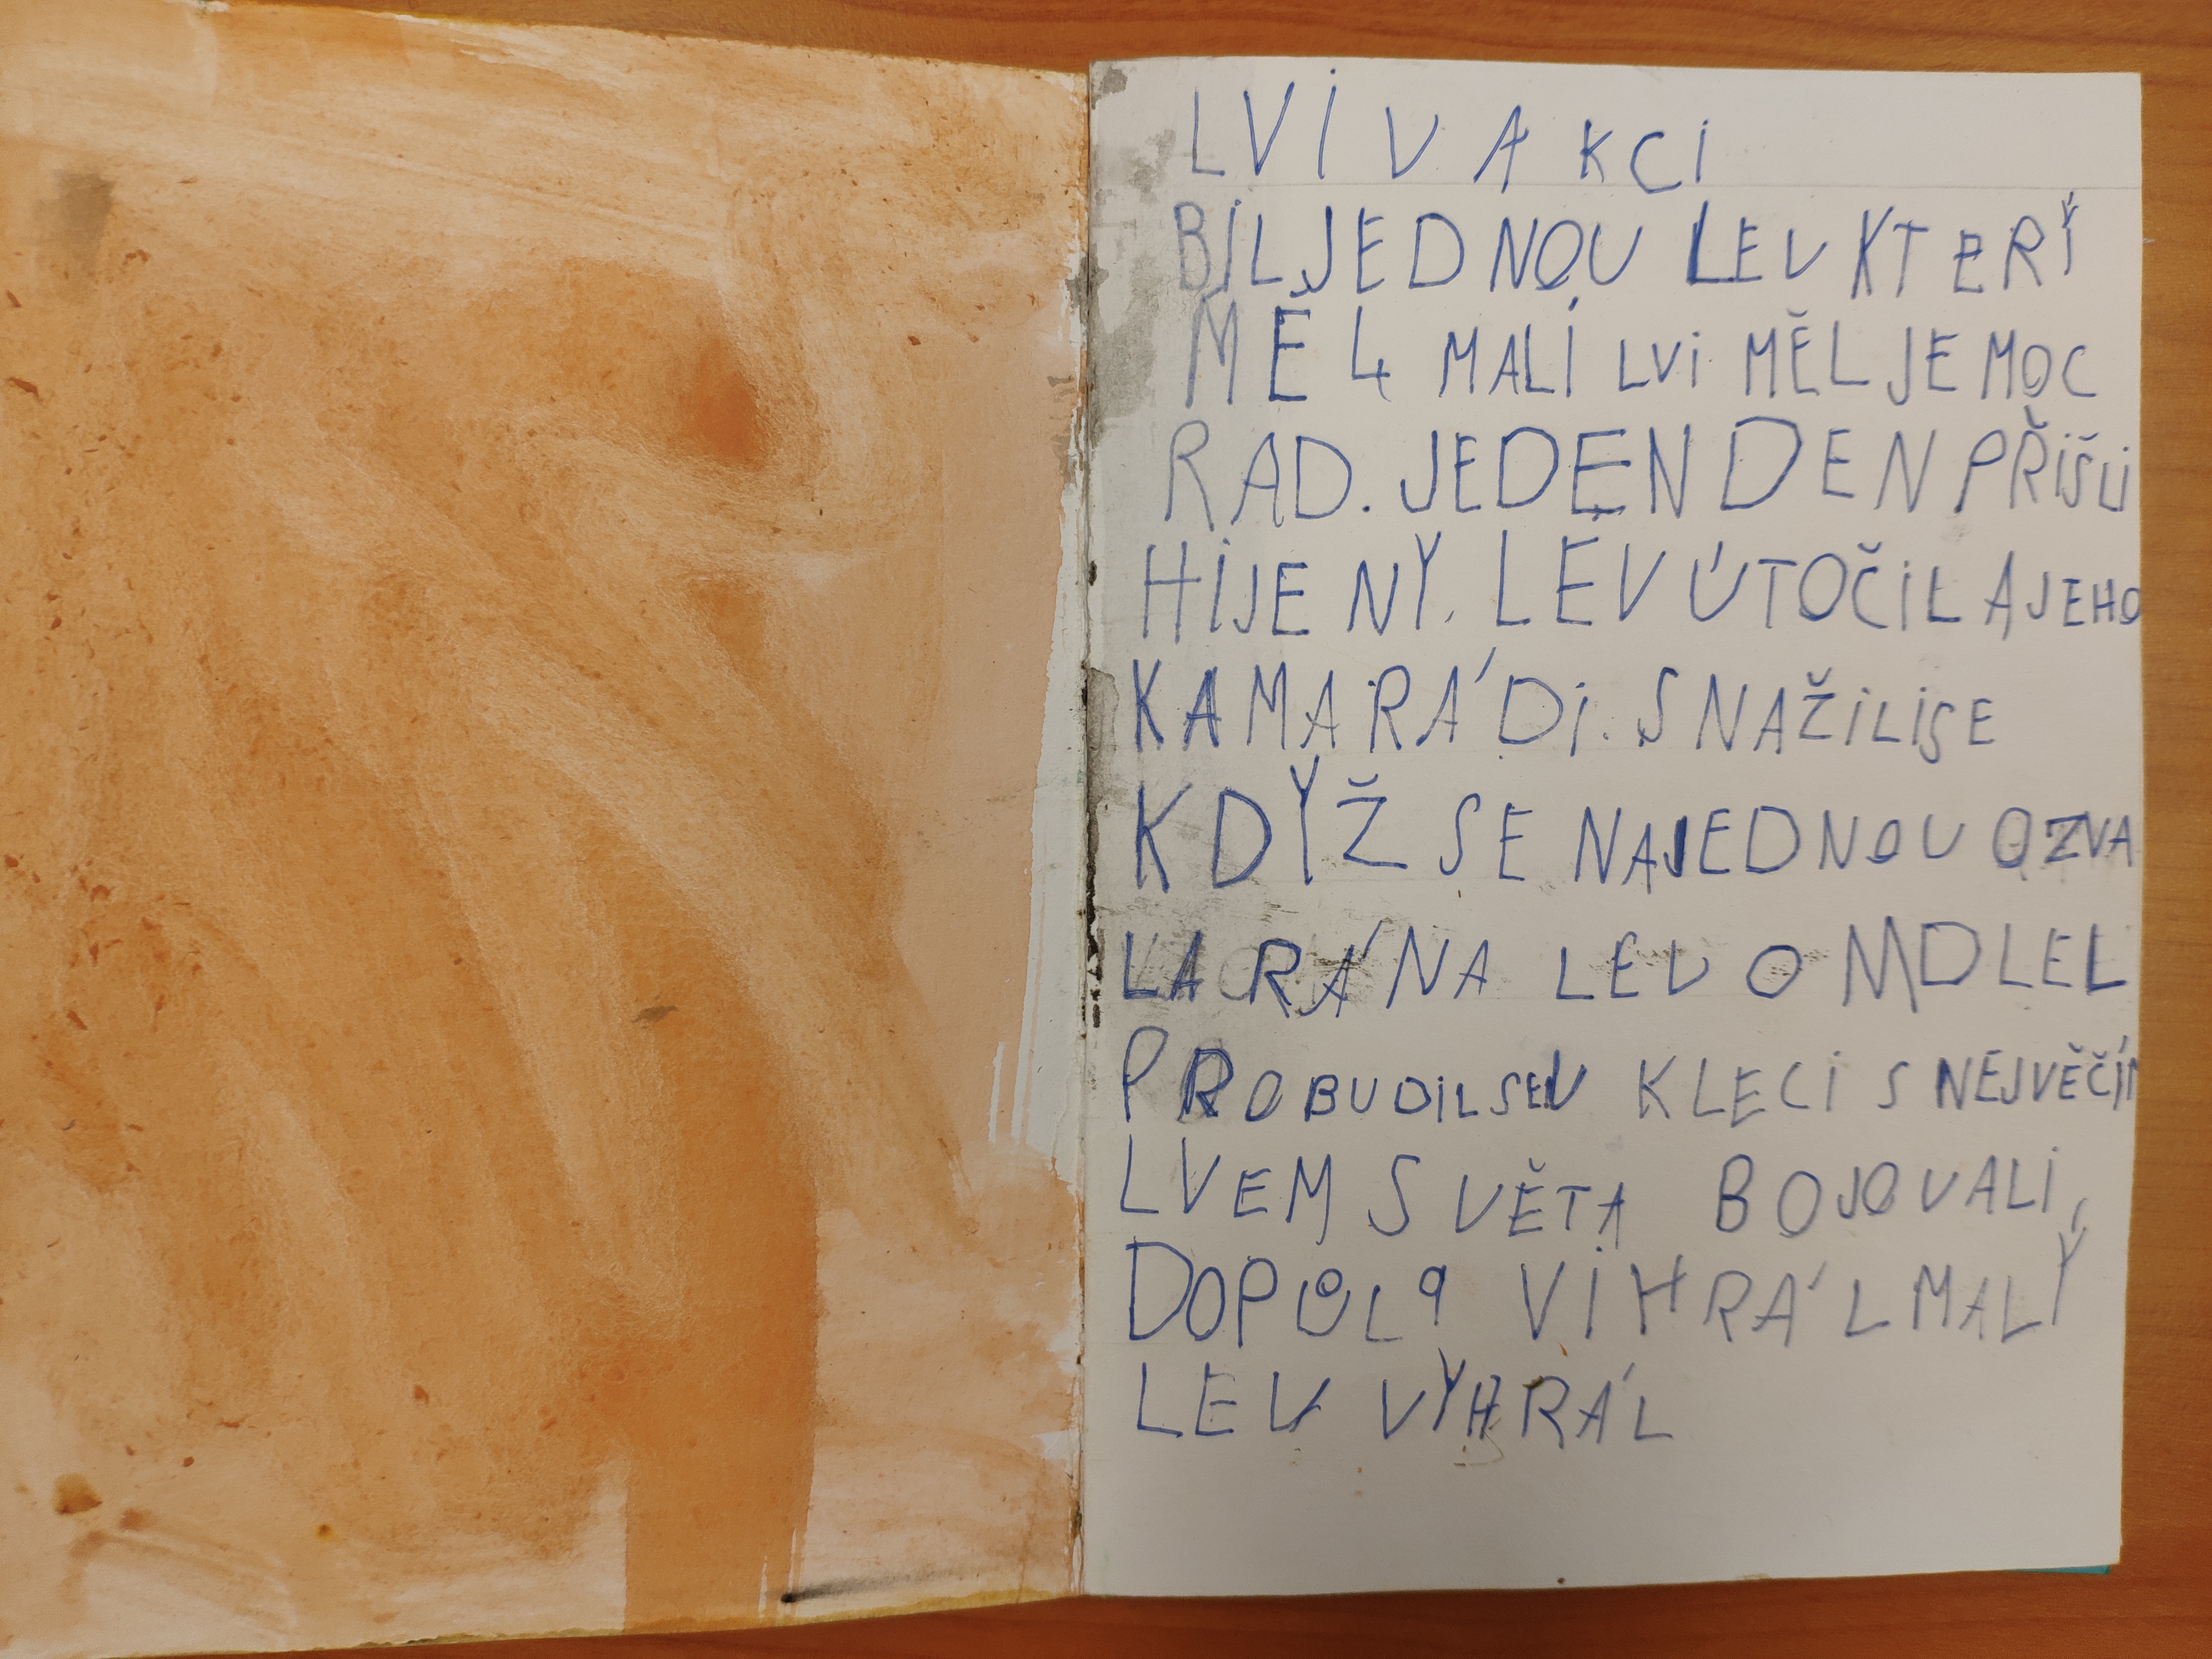 LVI V AKCI
BIL JEDNOU LEV KTERÝ
MĚ 4 MALÍ LVI MĚL JE MOC
RAD. JEDEN DEN PŘIŠLI
HIJENY. LEV ÚTOČIL A JEHO
KAMARÁDI. SNAŽILI SE
KDYŽ SE NAJEDNOU OZVA
LA RÁNA LEV OMDLEL
PROBUDIL SE V KLECI S NEJVĚČÍM
LVEM SVĚTA BOJOVALI,
DOPŮLA VIHRÁL MALÝ
LEV VYHRÁL